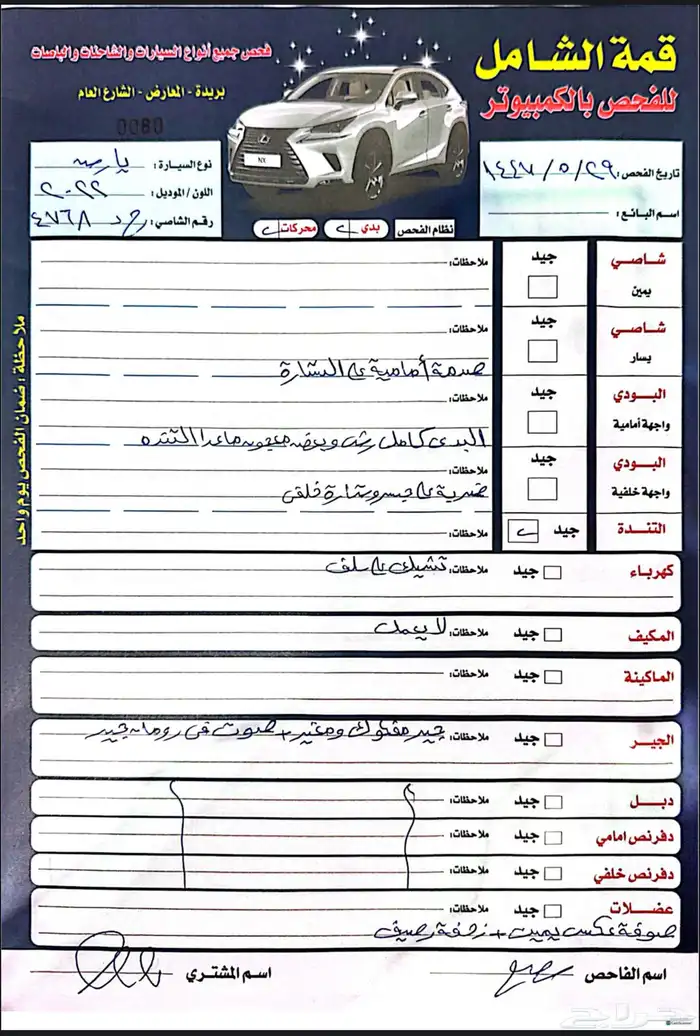 قمة الشامل
للفحص بالكمبيوتر
فحص جميع أنواع السيارات والشاحنات والباصات
بريدة - المعارض - الشارع العام
0080
NX
تاريخ الفحص : ١٤٤٧/٥/٢٩
اسم البائع :
نوع السيارة : يارس
اللون / الموديل : ٢٠٢٢
رقم الشاصي : ح د ٤٧٦٨
نظام الفحص
بدي
محركات
شاصي
يمين
جيد
ملاحظات:
شاصي
يسار
جيد
ملاحظات:
صدمة أمامية ع اليسارة
البودي
واجهة أمامية
جيد
ملاحظات:
البدي كامل رش وبعضه معجون ماعدا التنده
البودي
واجهة خلفية
جيد
ملاحظات:
ضربة ع جيب يسارة خلفي
التندة
جيد
ملاحظات:
كهرباء
جيد
ملاحظات: تشيك ع سلف
المكيف
جيد
ملاحظات: لا يعمل
الماكينة
جيد
ملاحظات:
الجير
جيد
ملاحظات: جير مفكوك ومغير + صوت في رومان جير
دبل
جيد
ملاحظات:
دفرنص امامي
جيد
ملاحظات:
دفرنص خلفي
جيد
ملاحظات:
عضلات
جيد
ملاحظات:
صوفة عكس يمين + زحفة رصيف
اسم الفاحص
اسم المشتري
ملاحظة : ضمان الفحص يوم واحد
حراج